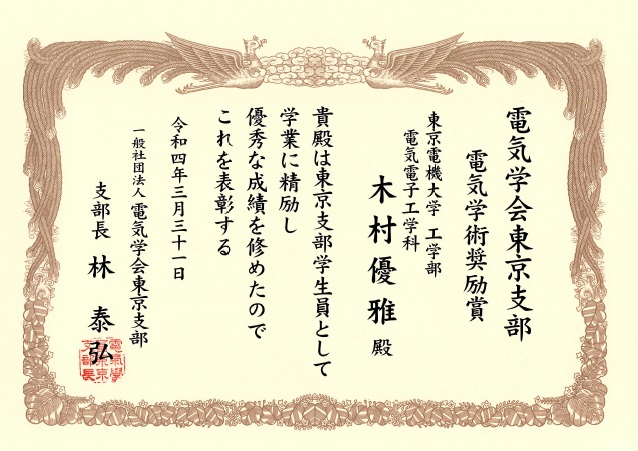 電気学会東京支部
電気学術奨励賞
東京電機大学 工学部
電気電子工学科
木村優雅 殿
貴殿は東京支部学生員として
学業に精励し
優秀な成績を修めたので
これを表彰する
令和四年三月三十一日
一般社団法人 電気学会東京支部
支部長 林 泰弘
電氣學
東京
支部長